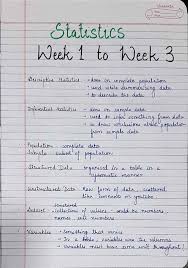 Statistics
Week 1 to Week 3
Descriptive Statistics - done on complete population
- used while summarising data
- to describe the data
Inferential Statistics - done on sample data
- used to infer something from data
- to draw conclusions about population
from sample data
Population - complete data
Sample - subset of population
Structured Data - organised in a table in a
systematic manner
Unstructured Data - Raw form of data, scattered
like comments on youtube
Dataset - collections of values - could be numbers
names, roll numbers
Variables - Something that varies
- In a table, variables are the columns
- Variables must have same unit throughout